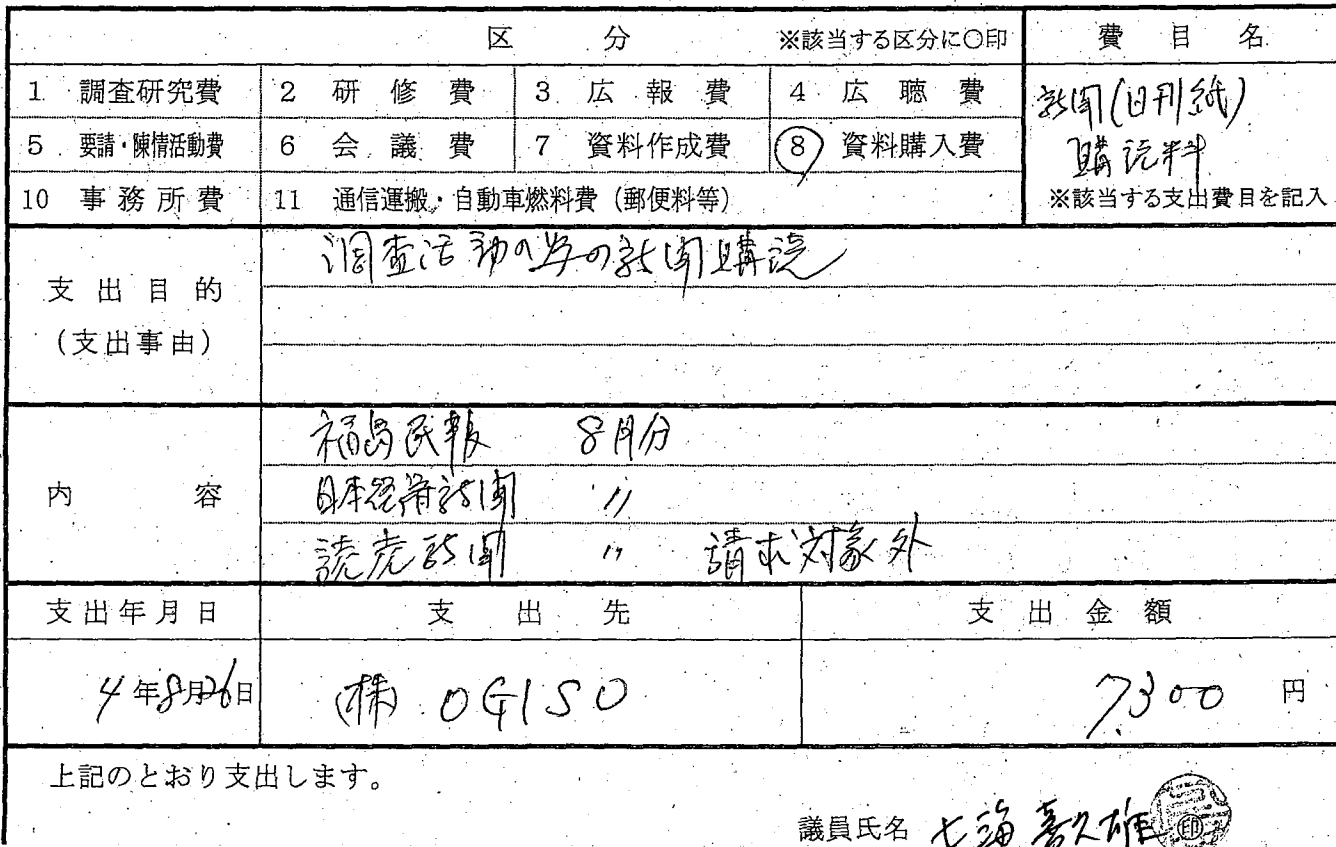 区分 ※該当する区分に○印 費目名
1 調査研究費 2 研修費 3 広報費 4 広聴費 新聞(日刊紙)
5 要請・陳情活動費 6 会議費 7 資料作成費 8 資料購入費 購読料
10 事務所費 11 通信運搬・自動車燃料費(郵便料等) ※該当する支出費目を記入
支出目的 調査活動の為の新聞購読
(支出事由)
福島民報 8月分
内容 日本経済新聞 〃
読売新聞 〃 請求対象外
支出年月日 支出先 支出金額
4年8月26日 (株)OGISO 7300円
上記のとおり支出します。
議員氏名 七海喜久雄 印